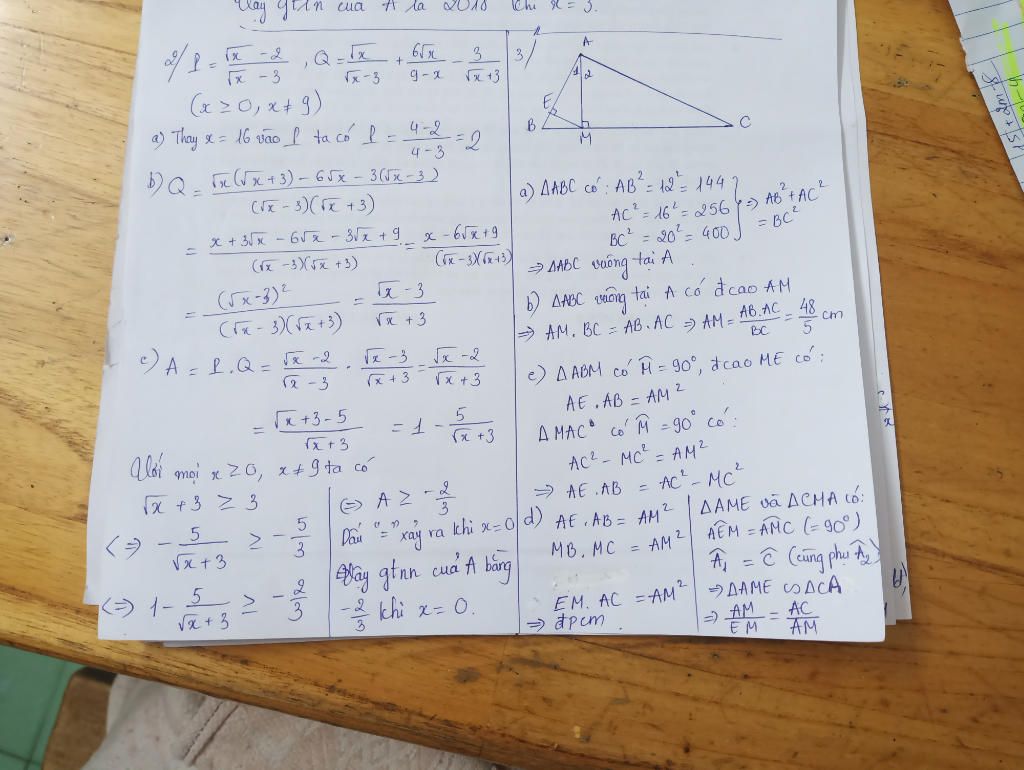 Vậy gtln của A là 2018 khi x = 3.
2/ P = (√x - 2)/(√x - 3) , Q = √x/(√x - 3) + 6√x/(9 - x) - 3/(√x + 3)
(x ≥ 0, x ≠ 9)
a) Thay x = 16 vào P ta có P = (4 - 2)/(4 - 3) = 2
b) Q = (√x(√x + 3) - 6√x - 3(√x - 3))/((√x - 3)(√x + 3))
= (x + 3√x - 6√x - 3√x + 9)/((√x - 3)(√x + 3)) = (x - 6√x + 9)/((√x - 3)(√x + 3))
= (√x - 3)²/((√x - 3)(√x + 3)) = (√x - 3)/(√x + 3)
c) A = P.Q = (√x - 2)/(√x - 3) . (√x - 3)/(√x + 3) = (√x - 2)/(√x + 3)
= (√x + 3 - 5)/(√x + 3) = 1 - 5/(√x + 3)
Với mọi x ≥ 0, x ≠ 9 ta có
√x + 3 ≥ 3
<=> - 5/(√x + 3) ≥ - 5/3
<=> 1 - 5/(√x + 3) ≥ - 2/3
<=> A ≥ - 2/3
Dấu "=" xảy ra khi x = 0
Vậy gtnn của A bằng
- 2/3 khi x = 0.
3/
A
1 2
E
B M C
a) ΔABC có: AB² = 12² = 144
AC² = 16² = 256
BC² = 20² = 400
=> AB² + AC²
= BC²
=> ΔABC vuông tại A
b) ΔABC vuông tại A có đcao AM
=> AM . BC = AB . AC => AM = AB.AC/BC = 48/5 cm
c) ΔABM có M̂ = 90°, đcao ME có:
AE . AB = AM²
ΔMAC có M̂ = 90° có:
AC² - MC² = AM²
=> AE . AB = AC² - MC²
d) AE . AB = AM²
MB . MC = AM²
EM . AC = AM²
=> đpcm
ΔAME và ΔCMA có:
AÊM = AM̂C (= 90°)
Â₁ = Ĉ (cùng phụ Â₂)
=> ΔAME ∽ ΔCA
=> AM/EM = AC/AM
15 + 2m - 8